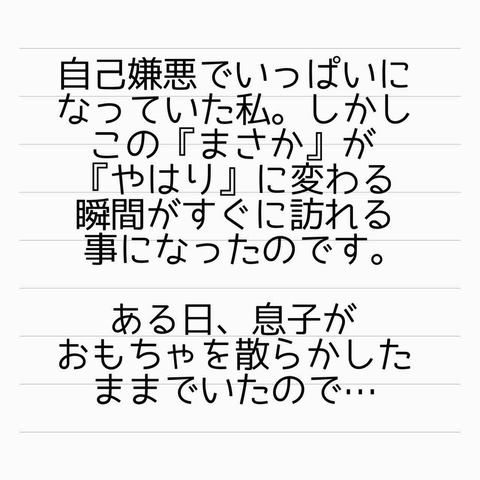 自己嫌悪でいっぱいに
なっていた私。しかし
この『まさか』が
『やはり』に変わる
瞬間がすぐに訪れる
事になったのです。
ある日、息子が
おもちゃを散らかした
ままでいたので…